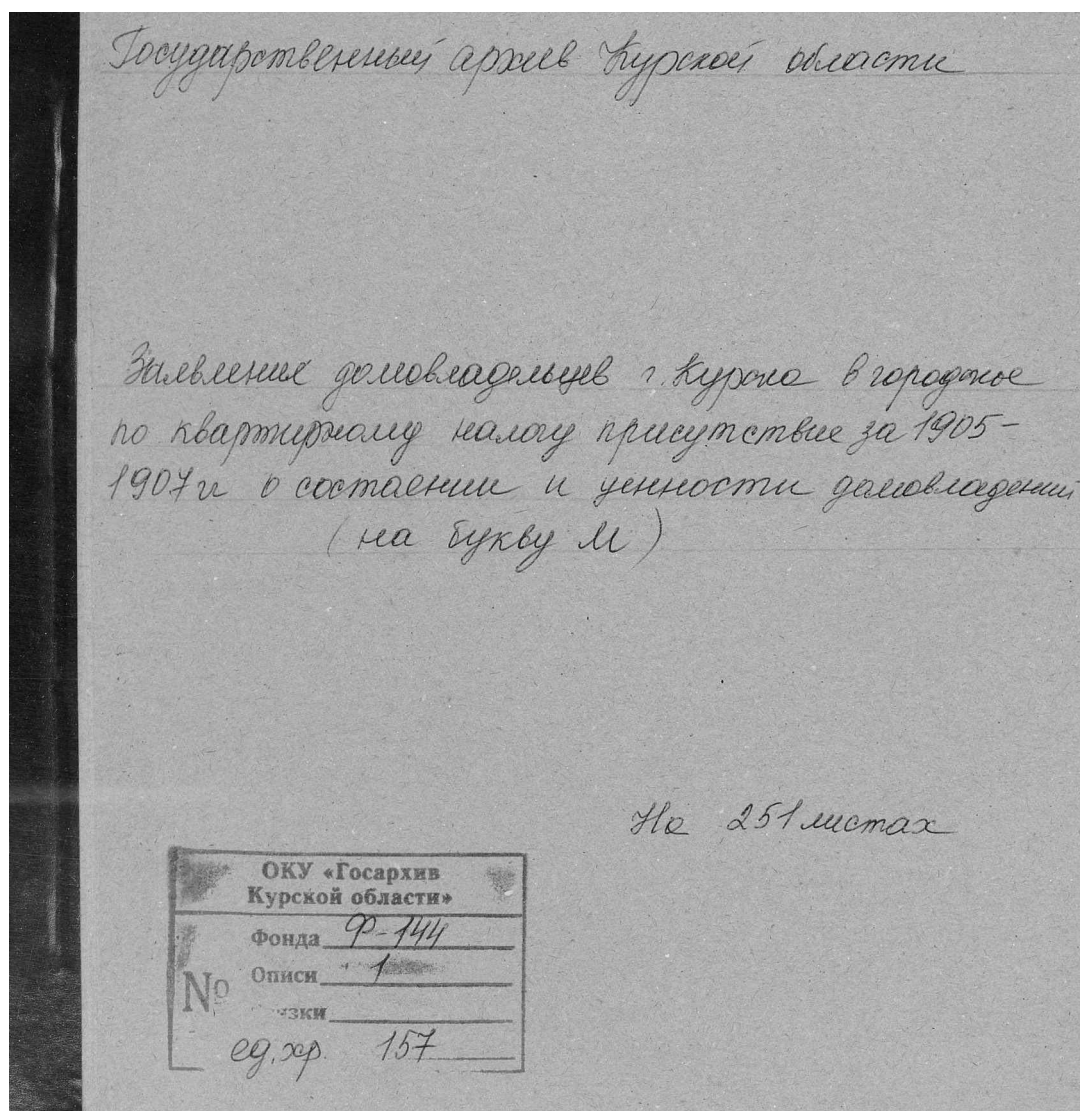 Государственный архив Курской области
Заявления домовладельцев г. Курска в городское
по квартирному налогу присутствие за 1905-
1907 гг о состоянии и ценности домовладений
(на букву М)
На 251 листах
ОКУ «Госархив
Курской области»
Фонда Ф-144
Описи 1
№
ед. хр. 157